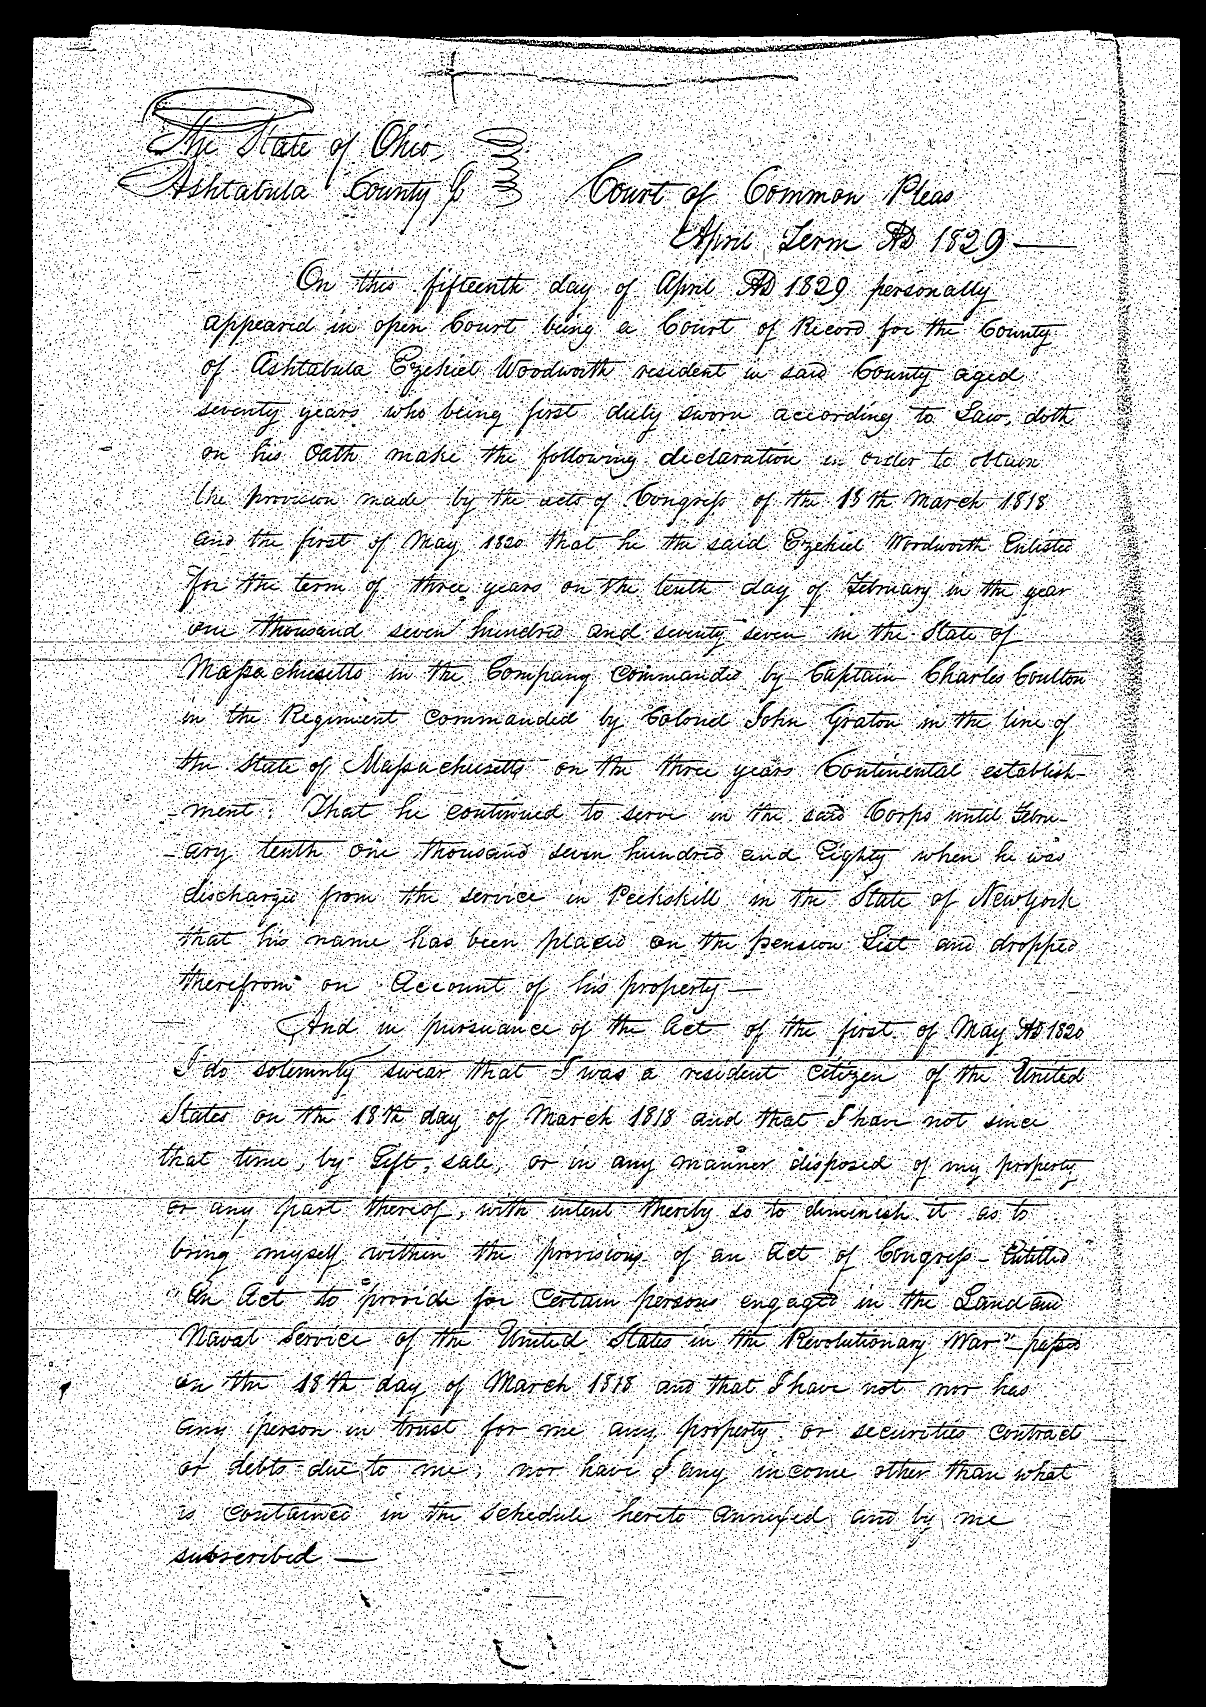 The State of Ohio,
Ashtabula County
Court of Common Pleas
April Term AD 1829 —
On this fifteenth day of April AD 1829 personally
appeared in open Court being a Court of Record for the County
of Ashtabula Ezekiel Woodworth resident in said County aged
seventy years who being first duly sworn according to Law, doth
on his Oath make the following declaration in order to obtain
the provision made by the acts of Congress of the 18th March 1818
and the first of May 1820 that he the said Ezekiel Woodworth Enlisted
for the term of three years on the tenth day of February in the year
one thousand seven hundred and seventy seven in the State of
Massachusetts in the Company commanded by Captain Charles Coulton
in the Regiment commanded by Colonel John Graton in the line of
the State of Massachusetts on the three years Continental establish-
-ment. That he continued to serve in the said Corps until Febru-
-ary tenth one thousand seven hundred and Eighty when he was
discharged from the service in Peekskill in the State of New York
that his name has been placed on the pension List and dropped
therefrom on Account of his property —
And in pursuance of the Act of the first of May AD 1820
I do solemnly swear that I was a resident citizen of the United
States on the 18th day of March 1818 and that I have not since
that time, by Gift, sale, or in any manner disposed of my property
or any part thereof, with intent thereby so to diminish it as to
bring myself within the provisions of an Act of Congress – Entitled
"An Act to provide for certain persons engaged in the Land and
Naval Service of the United States in the Revolutionary War" – passed
on the 18th day of March 1818 and that I have not nor has
any person in trust for me any property or securities contract
or debts due to me; nor have I any income other than what
is contained in the schedule hereto annexed and by me
subscribed —